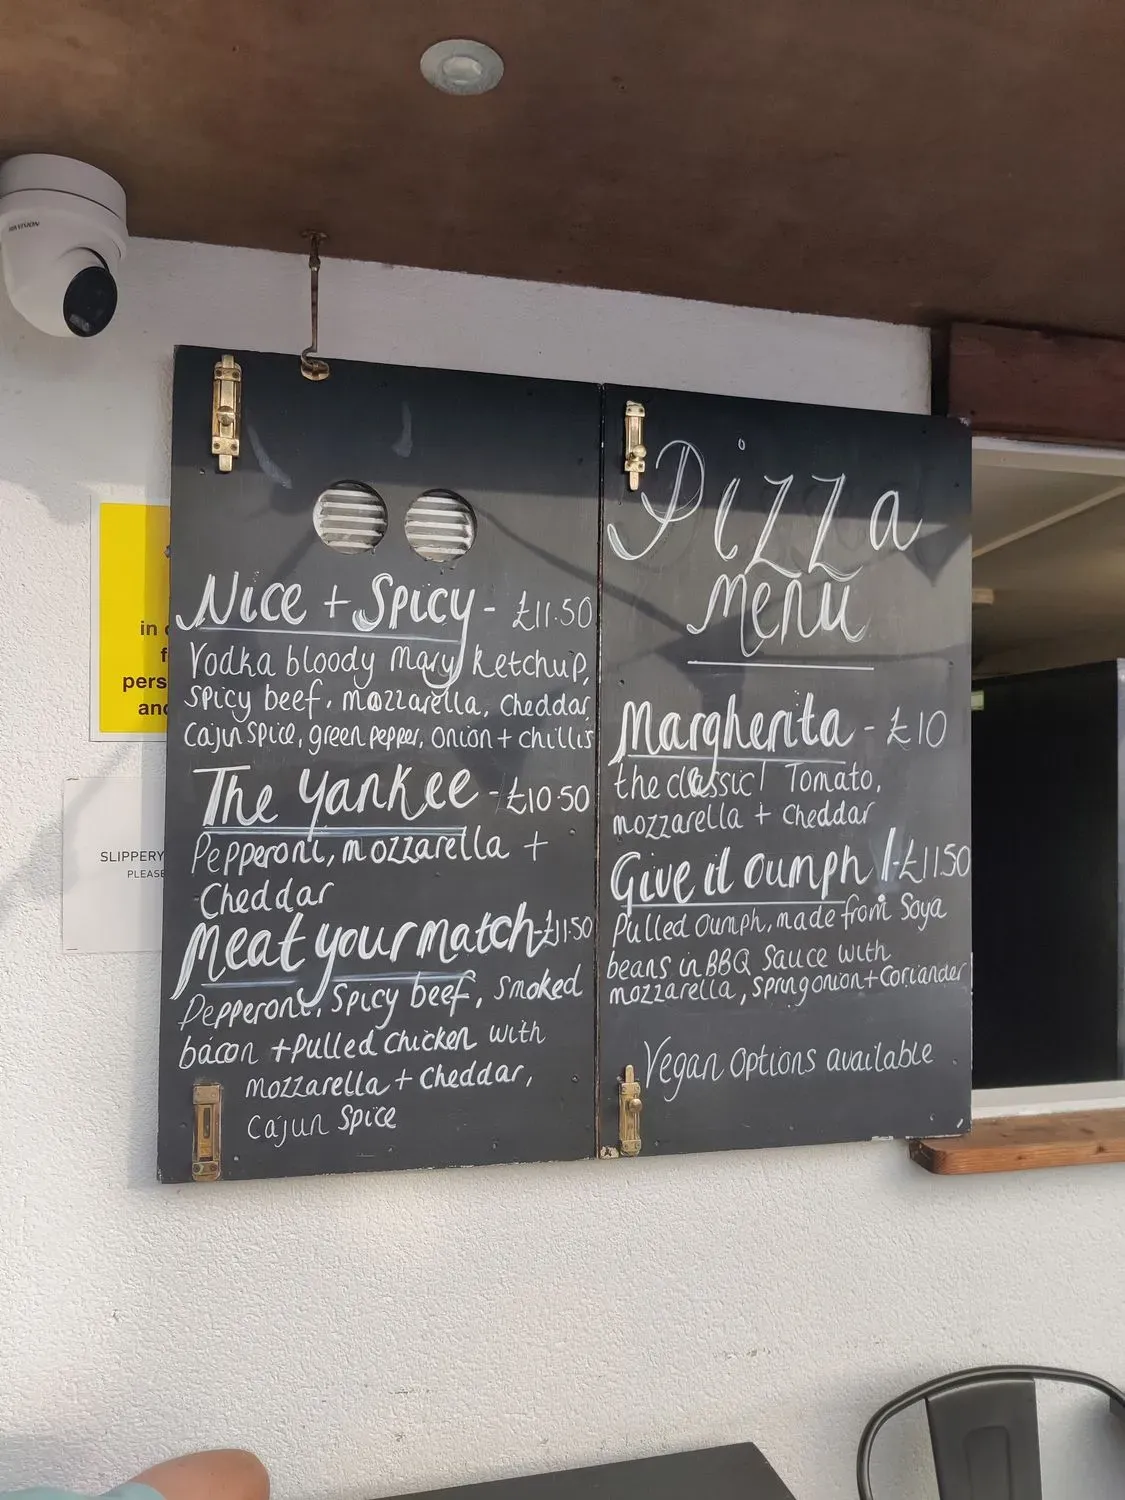 HIKVISION
in
pers
and
SLIPPERY
PLEASE
Nice + Spicy - £11.50
Vodka bloody Mary Ketchup,
Spicy beef, mozzarella, cheddar,
Cajun Spice, green pepper, onion + chillis
The Yankee - £10.50
Pepperoni, mozzarella +
Cheddar
Meat your match - £11.50
Pepperoni, Spicy beef, smoked
bacon + Pulled Chicken with
mozzarella + cheddar,
Cajun Spice
Pizza
Menu
Margherita - £10
the classic! Tomato,
mozzarella + cheddar
Give it oumph! - £11.50
Pulled Oumph, made from Soya
beans in BBQ Sauce with
mozzarella, Spring onion + Coriander
Vegan options available